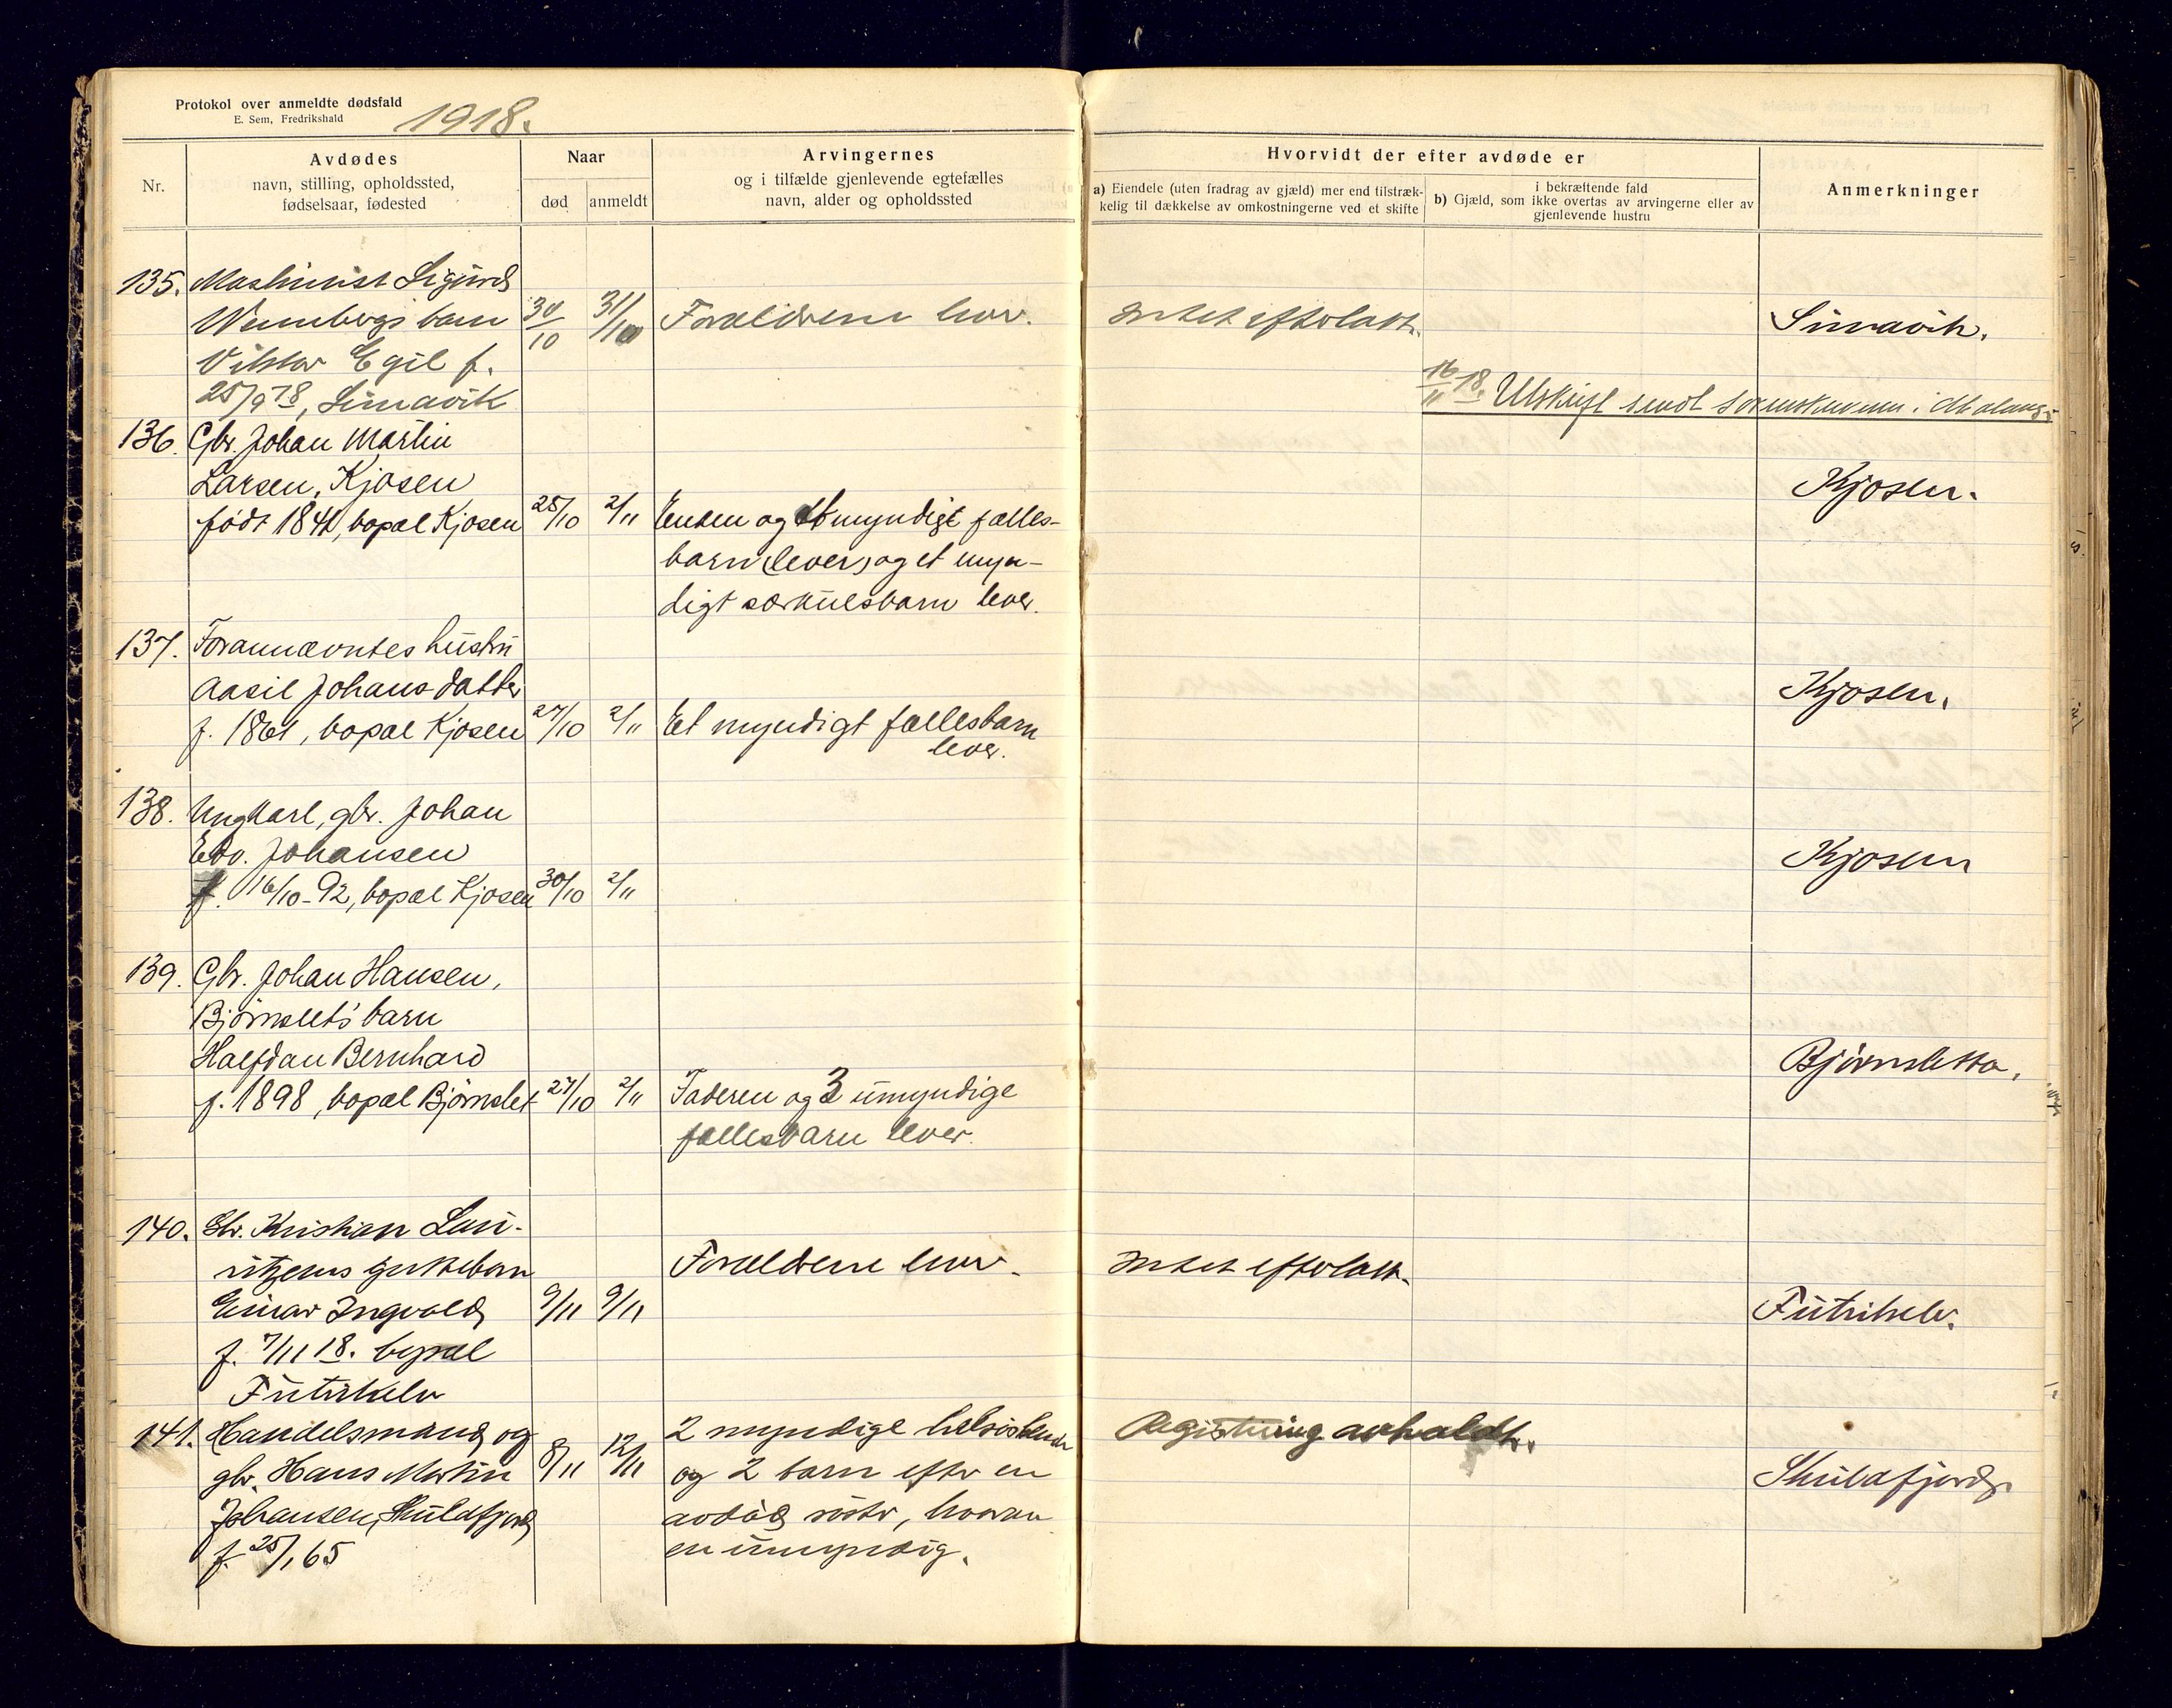 Protokol over anmeldte dødsfald
E. Sem, Fredrikshald
1918.
Nr.
Avdødes
navn, stilling, opholdssted,
fødselsaar, fødested
Naar
død
anmeldt
Arvingernes
og i tilfælde gjenlevende egtefælles
navn, alder og opholdssted
Hvorvidt der efter avdøde er
a) Eiendele (uten fradrag av gjæld) mer end tilstræk-
kelig til dækkelse av omkostningerne ved et skifte
i bekræftende fald
b) Gjæld, som ikke overtas av arvingerne eller av
gjenlevende hustru
Anmerkninger
135. Maskinist Sigurd
Wennbergs barn 30/10 31/10 Forældrene lever. Intet efterlatt. Simavik.
Viktor Egil f.
25/9 18, Simavik
16/11 18. Utskrift sendt sorenskriveren i Malangs
136. Gbr. Johan Martin
Larsen, Kjosen Kjosen.
født 1841, bopæl Kjosen 25/10 2/11 Enken og et myndigt fælles-
barn (lever) og et myn-
digt særkulsbarn lever.
137. Forannævntes hustru
Aasil Johansdatter Kjosen.
f. 1861, bopæl Kjosen 27/10 2/11 Et myndigt fællesbarn
lever.
138. Ungkarl, gbr. Johan
Edv. Johansen Kjosen
f. 16/10-92, bopæl Kjosen 30/10 2/11
139. Gbr. Johan Hansen,
Bjørnslet's barn
Halfdan Bernhard Bjørnsletta.
f. 1898, bopæl Bjørnslet 27/10 2/11 Faderen og 3 umyndige
fællesbarn lever.
140. Gbr. Kristian Lau-
ritzens pikebarn Forældrene lever. Intet efterlatt.
Einar Ingvald 9/11 9/11 Futrikelv.
f. 7/11 18. bopæl
Futrikelv
141. Handelsmand og 8/11 12/11 2 myndige helsøsken Registrering avholdt.
gbr. Hans Martin og 2 barn efter en Skulsfjord.
Johansen, Skulsfjord avdød søster, hvorav
f. 25/1 65 en umyndig.